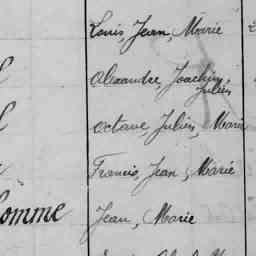 Louis, Jean, Marie
Alexandre, Joachim,
Julien
Octave Julien, Marie
Francis, Jean, Marie
homme Jean, Marie